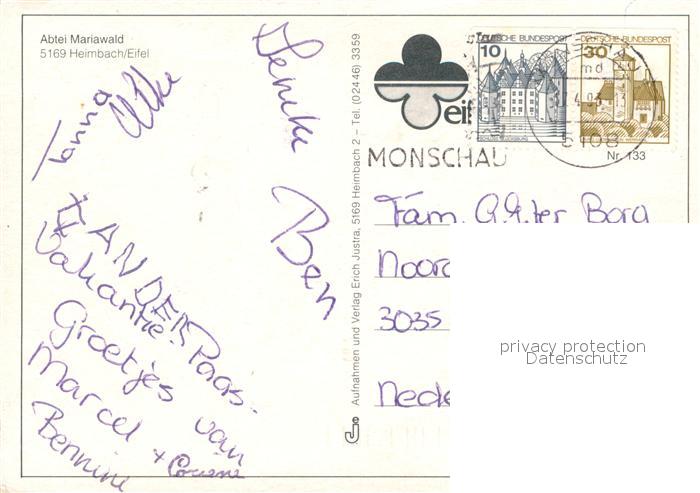 Abtei Mariawald
5169 Heimbach/Eifel
Janna
Elke
Jenneke
Ben
XANDER
Vakantie-Paas-
Groetjes van
Marcel + Corine
Bennine
Aufnahmen und Verlag Erich Justra, 5169 Heimbach 2 – Tel. (02446) 3359
DEUTSCHE BUNDESPOST
10
DEUTSCHE BUNDESPOST
30
eif
MONSCHAU
5108
Nr. 133
Fam. A.A. ter Borg
Noord
3035
Nede
privacy protection
Datenschutz